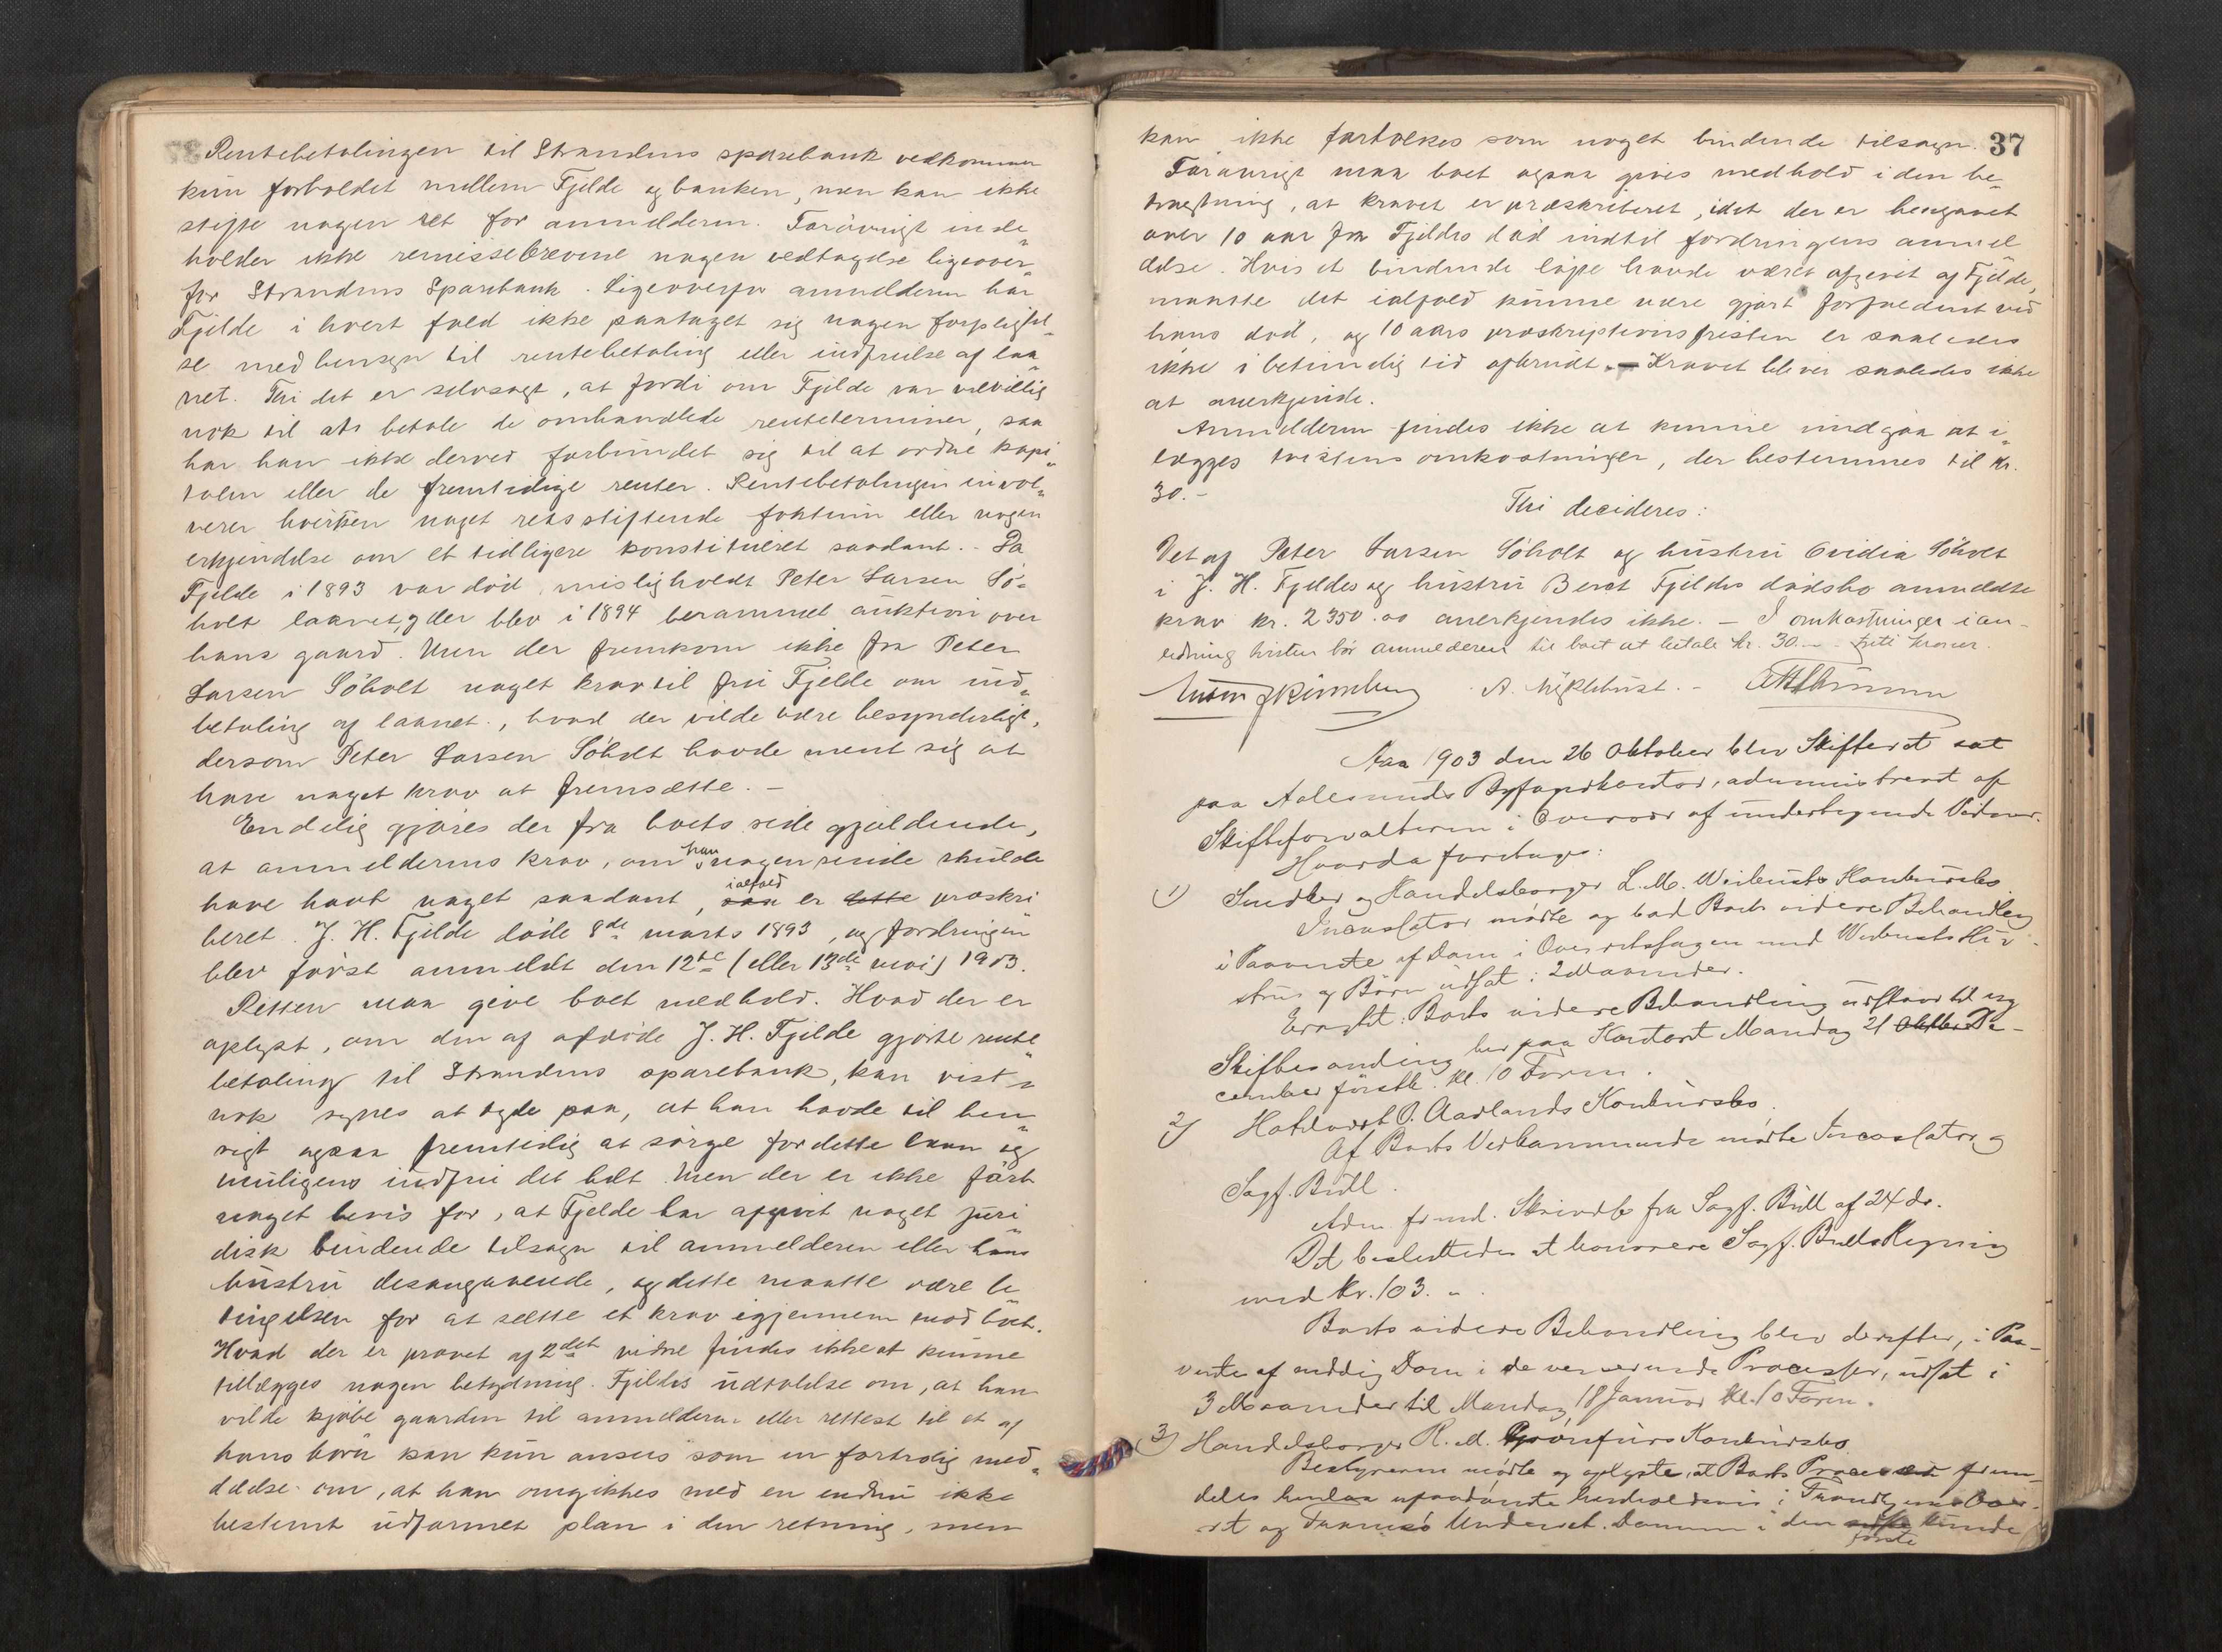 Rentebetalingen til Strandens sparebank vedkommer
kun forholdet mellem Fjelde og banken, men kan ikke
stifte nogen ret for anmelderen. Forøvrigt inde-
holder ikke remissebrevene nogen vedtagelse ligeover-
for Strandens Sparebank. Ligeoverfor anmelderen har
Fjelde i hvert fald ikke paataget sig nogen forpligtel-
se med hensyn til rentebetaling eller indfrielse af laa-
net. Thi det er selvsagt, at fordi om Fjelde var velvillig
nok til at betale de omhandlede renteterminer, saa
har han ikke derved forbundet sig til at ordne kapi-
talen eller de fremtidige renter. Rentebetalingen invol-
verer hverken noget retsstiftende faktum eller nogen
erkjendelse om et tidligere konstitueret saadant. - Da
Fjelde i 1893 var død, misligholdt Peter Larsen Sø-
holt laanet, og der blev i 1894 berammet auktion over
hans gaard. Men der fremkom ikke fra Peter
Larsen Søholt noget krav til fru Fjelde om ind-
betaling af laanet, hvad der vilde være besynderligt,
dersom Peter Larsen Søholt havde ment sig at
have noget krav at fremsætte. -
Endelig gjøres der fra boets side gjældende,
at anmelderens krav, om han nogensinde skulde
have havt noget saadant, saa ialfald er dette præskri
beret. J. H. Fjelde døde 8de marts 1893, og fordringen
blev først anmeldt den 12te (eller 13de mai) 1903.
Retten maa give boet medhold. Hvad der er
oplyst, om den af afdøde J. H. Fjelde gjorte rente-
betaling til Strandens sparebank, kan vist-
nok synes at tyde paa, at han havde til hen-
sigt ogsaa fremtidig at sørge for dette laan og
muligens indfri det helt. Men der er ikke ført
noget bevis for, at Fjelde har afgivet noget juri-
disk bindende tilsagn til anmelderen eller hans
hustru desangaaende, og dette maatte være be-
tingelsen for at sætte et krav igjennem mod boet.
Hvad der er prøvet af 2det vidne findes ikke at kunne
tillægges nogen betydning. Fjeldes udtalelse om, at han
vilde kjøbe gaarden til anmelderen eller rettest til et af
hans børn kan kun ansees som en fortrolig med-
delelse om, at han omgikkes med en endnu ikke
bestemt udformet plan i den retning, men
37
kan ikke fortolkes som noget bindende tilsagn.
Forøvrigt maa boet ogsaa gives medhold i den be-
tragtning, at kravet er præskriberet, idet der er hengaaet
over 10 aar fra Fjeldes død indtil fordringens anmel
delse. Hvis et bindende løfte havde været afgivet af Fjelde,
maatte det ialfald kunne være gjort forfaldent ved
hans død, og 10 aars præskriptionsfristen er saaledes
ikke i betimelig tid afbrudt. - Kravet bliver saaledes ikke
at anerkjende.
Anmelderen findes ikke at kunne undgaa at i-
lægges tvistens omkostninger, der bestemmes til kr.
30.-
Thi decideres:
Det af Peter Larsen Søholt og hustru Ovidia Søholt
i J. H. Fjeldes og hustru Beret Fjeldes dødsbo anmeldte
krav kr. 2350.00 anerkjendes ikke. - I omkostninger i an-
ledning tvisten bør anmelderen til boet at betale kr. 30.- - treti kroner.
Aar 1903 den 26 Oktober blev Skifteret sat
paa Aalesunds Byfogedkontor, administreret af
Skifteforvalteren i Overvær af undertegnede Vidner.
Hvorda foretoges:
1) Snedker og Handelsborger L. M. Weibusts Konkursbo
Incassator mødte og bad Boets videre Behandling
i Paavente af Dom i Overretssagen med Weibusts Hu-
stru og Børn udsat i 2 Maaneder.
Eragtet: Boets videre Behandling udstaar til ny
Skiftesamling her paa Kontoret Mandag 21 Oktober De-
cember førstk. Kl. 10 Form.
2) P. Aarlands Konkursbo.
Af Boets Vedkommende mødte Incassator og
Sagf. Bull.
Adm. freml. Skrivelse fra Sagf. Bull af 24 ds.
Det besluttedes at honorere Sagf. Bulls Regning
med Kr. 103. "
Boets videre Behandling blev derefter, i Paa-
vente af endelig Dom i de verserende Processer, udsat i
3 Maaneder til Mandag 18 Januar Kl. 10 Form.
3) Handelsborger R. M. Konkursbo
Bestyreren mødte og oplyste, at Boets frem-
deles henlaa upaadømte henholdsvis i Trondhjems Over-
ret og Tromsø Underret. Dommen i den sidste første kunde